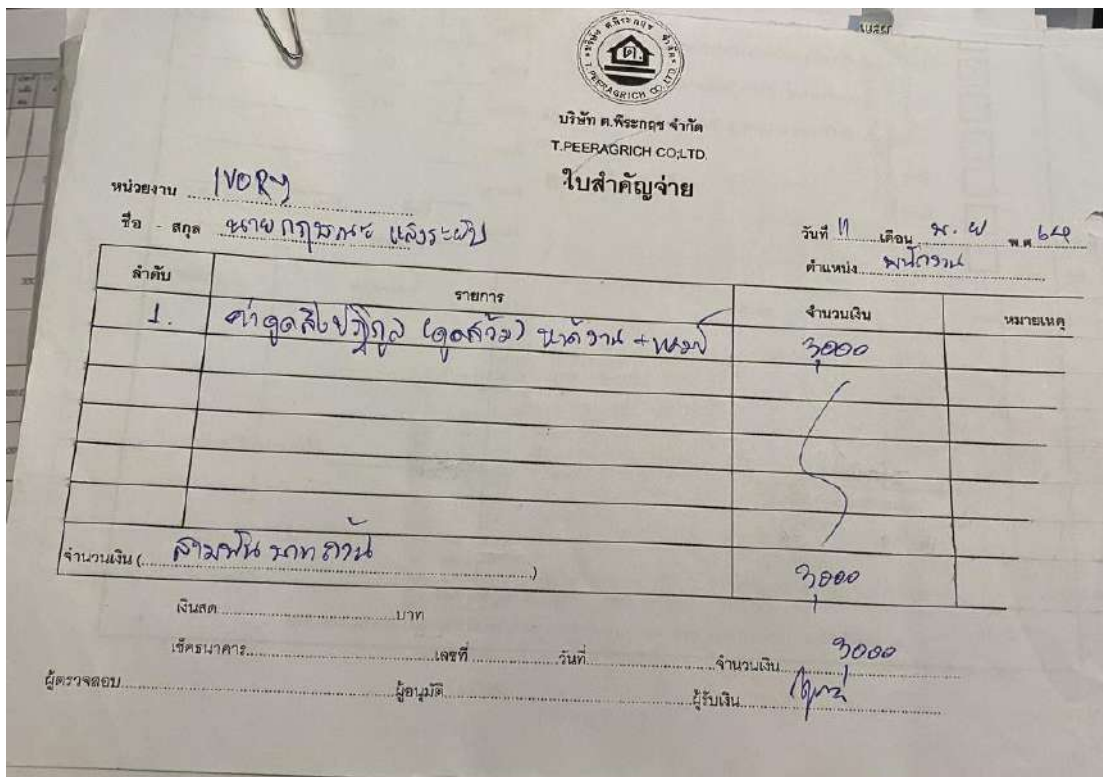 บริษัท ต.พีระกฤช จำกัด
T.PEERAGRICH CO.,LTD.
ต.
บริษัท ต.พีระกฤช จำกัด
T.PEERAGRICH CO;LTD.
ใบสำคัญจ่าย
หน่วยงาน IVORY
ชื่อ - สกุล นาย กฤษณะ
วันที่ 11 เดือน พ.ย พ.ศ 64
ตำแหน่ง พนักงาน
ลำดับ รายการ จำนวนเงิน หมายเหตุ
1. ค่าดูดสิ่งปฏิกูล (ดูดส้วม) หน้างาน + แคมป์ 3,000
จำนวนเงิน (สามพันบาทถ้วน) 3,000
เงินสด บาท
เช็คธนาคาร เลขที่ วันที่ จำนวนเงิน 3000
ผู้ตรวจสอบ ผู้อนุมัติ ผู้รับเงิน